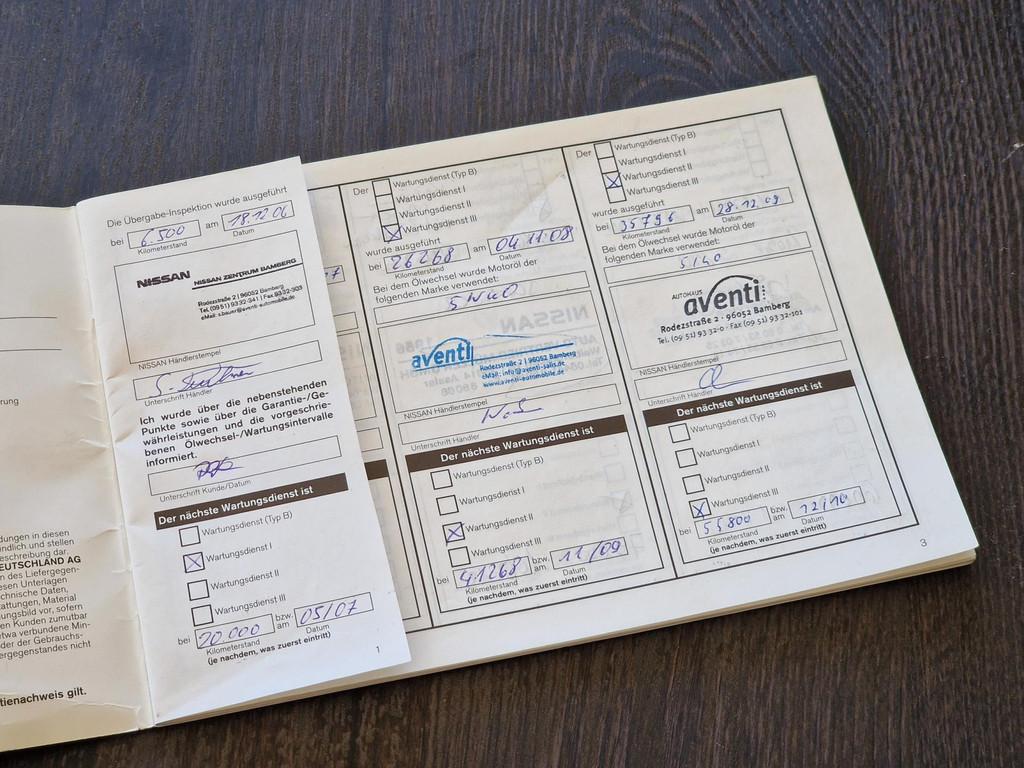 rung
dungen in diesen
ndlich und stellen
eschreibung dar.
EUTSCHLAND AG
n des Liefergegen-
esen Unterlagen
chnische Daten,
attungen, Material
ungsbild vor, sofern
en Kunden zumutbar
etwa verbundene Min-
der der Gebrauchs-
ergegenstandes nicht
tienachweis gilt.
Die Übergabe-Inspektion wurde ausgeführt
bei 6.500 am 18.12.06
Kilometerstand Datum
NISSAN NISSAN ZENTRUM BAMBERG
Rodezstraße 2 | 96052 Bamberg
Tel. (09 51) 93 32-341 | Fax 93 32-303
eMail: s.bauer@aventi-automobile.de
NISSAN Händlerstempel
Unterschrift Händler
Ich wurde über die nebenstehenden
Punkte sowie über die Garantie-/Ge-
währleistungen und die vorgeschrie-
benen Ölwechsel-/Wartungsintervalle
informiert.
Unterschrift Kunde/Datum
Der nächste Wartungsdienst ist
Wartungsdienst (Typ B)
Wartungsdienst I
Wartungsdienst II
Wartungsdienst III
bei 20.000 bzw. am 05/07
Kilometerstand Datum
(je nachdem, was zuerst eintritt)
1
Der Wartungsdienst (Typ B)
Wartungsdienst I
Wartungsdienst II
Wartungsdienst III
wurde ausgeführt
bei 26268 am 04.11.08
Kilometerstand Datum
Bei dem Ölwechsel wurde Motoröl der
folgenden Marke verwendet:
5W40
aventi Rodezstraße 2 | 96052 Bamberg
eMail: info@aventi-salis.de
www.aventi-automobile.de
NISSAN Händlerstempel
Unterschrift Händler
Der nächste Wartungsdienst ist
Wartungsdienst (Typ B)
Wartungsdienst I
Wartungsdienst II
Wartungsdienst III
bei 41268 bzw. am 11/09
Kilometerstand Datum
(je nachdem, was zuerst eintritt)
Der Wartungsdienst (Typ B)
Wartungsdienst I
Wartungsdienst II
Wartungsdienst III
wurde ausgeführt
bei 35796 am 28.12.09
Kilometerstand Datum
Bei dem Ölwechsel wurde Motoröl der
folgenden Marke verwendet:
5/40
AUTOHAUS
aventi
Rodezstraße 2 - 96052 Bamberg
Tel. (09 51) 93 32-0 - Fax (09 51) 93 32-101
NISSAN Händlerstempel
Unterschrift Händler
Der nächste Wartungsdienst ist
Wartungsdienst (Typ B)
Wartungsdienst I
Wartungsdienst II
Wartungsdienst III
bei 55800 bzw. am 12/10
Kilometerstand Datum
(je nachdem, was zuerst eintritt)
3